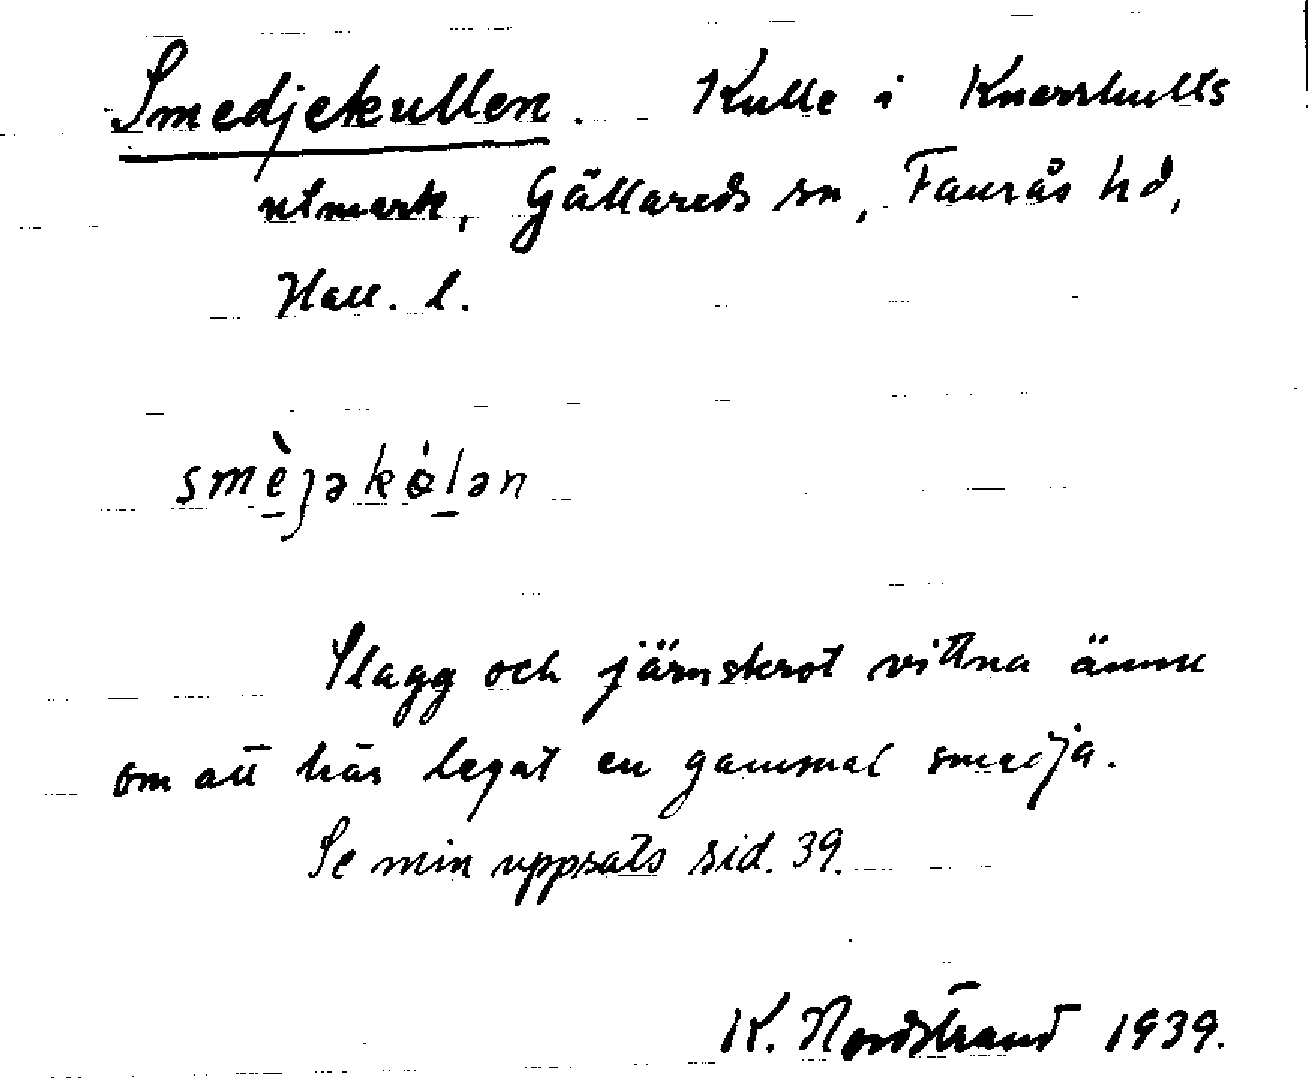 Smedjekullen. Kulle i Knarrhults
utmark, Gällareds sn, Faurås hd,
Hall. l.
smè̱ȷəkó̵ḻən
Slagg och järnskrot vittna ännu
om att här legat en gammal smedja.
Se min uppsats sid. 39.
K. Nordstrand 1939.